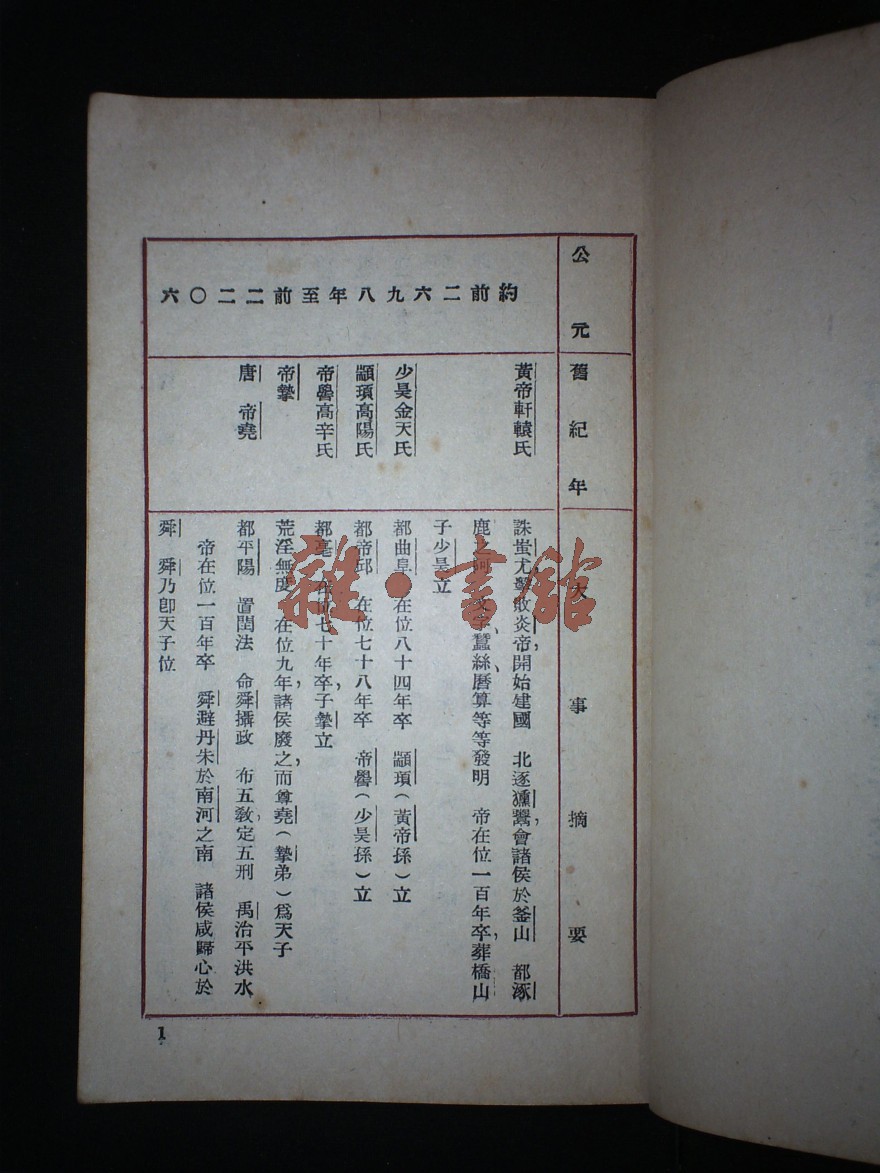 公元
舊紀年
大事摘要
約前二六九八年至前二二〇六
黃帝軒轅氏
誅蚩尤,擊敗炎帝,開始建國 北逐獯鬻,會諸侯於釜山 都涿
鹿之阿 文字、蠶絲、曆算等等發明 帝在位一百年卒,葬橋山
子少昊立
少昊金天氏
都曲阜 在位八十四年卒 顓頊(黃帝孫)立
顓頊高陽氏
都帝邱 在位七十八年卒 帝嚳(少昊孫)立
帝嚳高辛氏
都亳 在位七十年卒,子摯立
帝摯
荒淫無度 在位九年,諸侯廢之,而尊堯(摯弟)爲天子
唐 帝堯
都平陽 置閏法 命舜攝政 布五敎,定五刑 禹治平洪水
帝在位一百年卒 舜避丹朱於南河之南 諸侯咸歸心於
舜 舜乃卽天子位
1
雜·書館